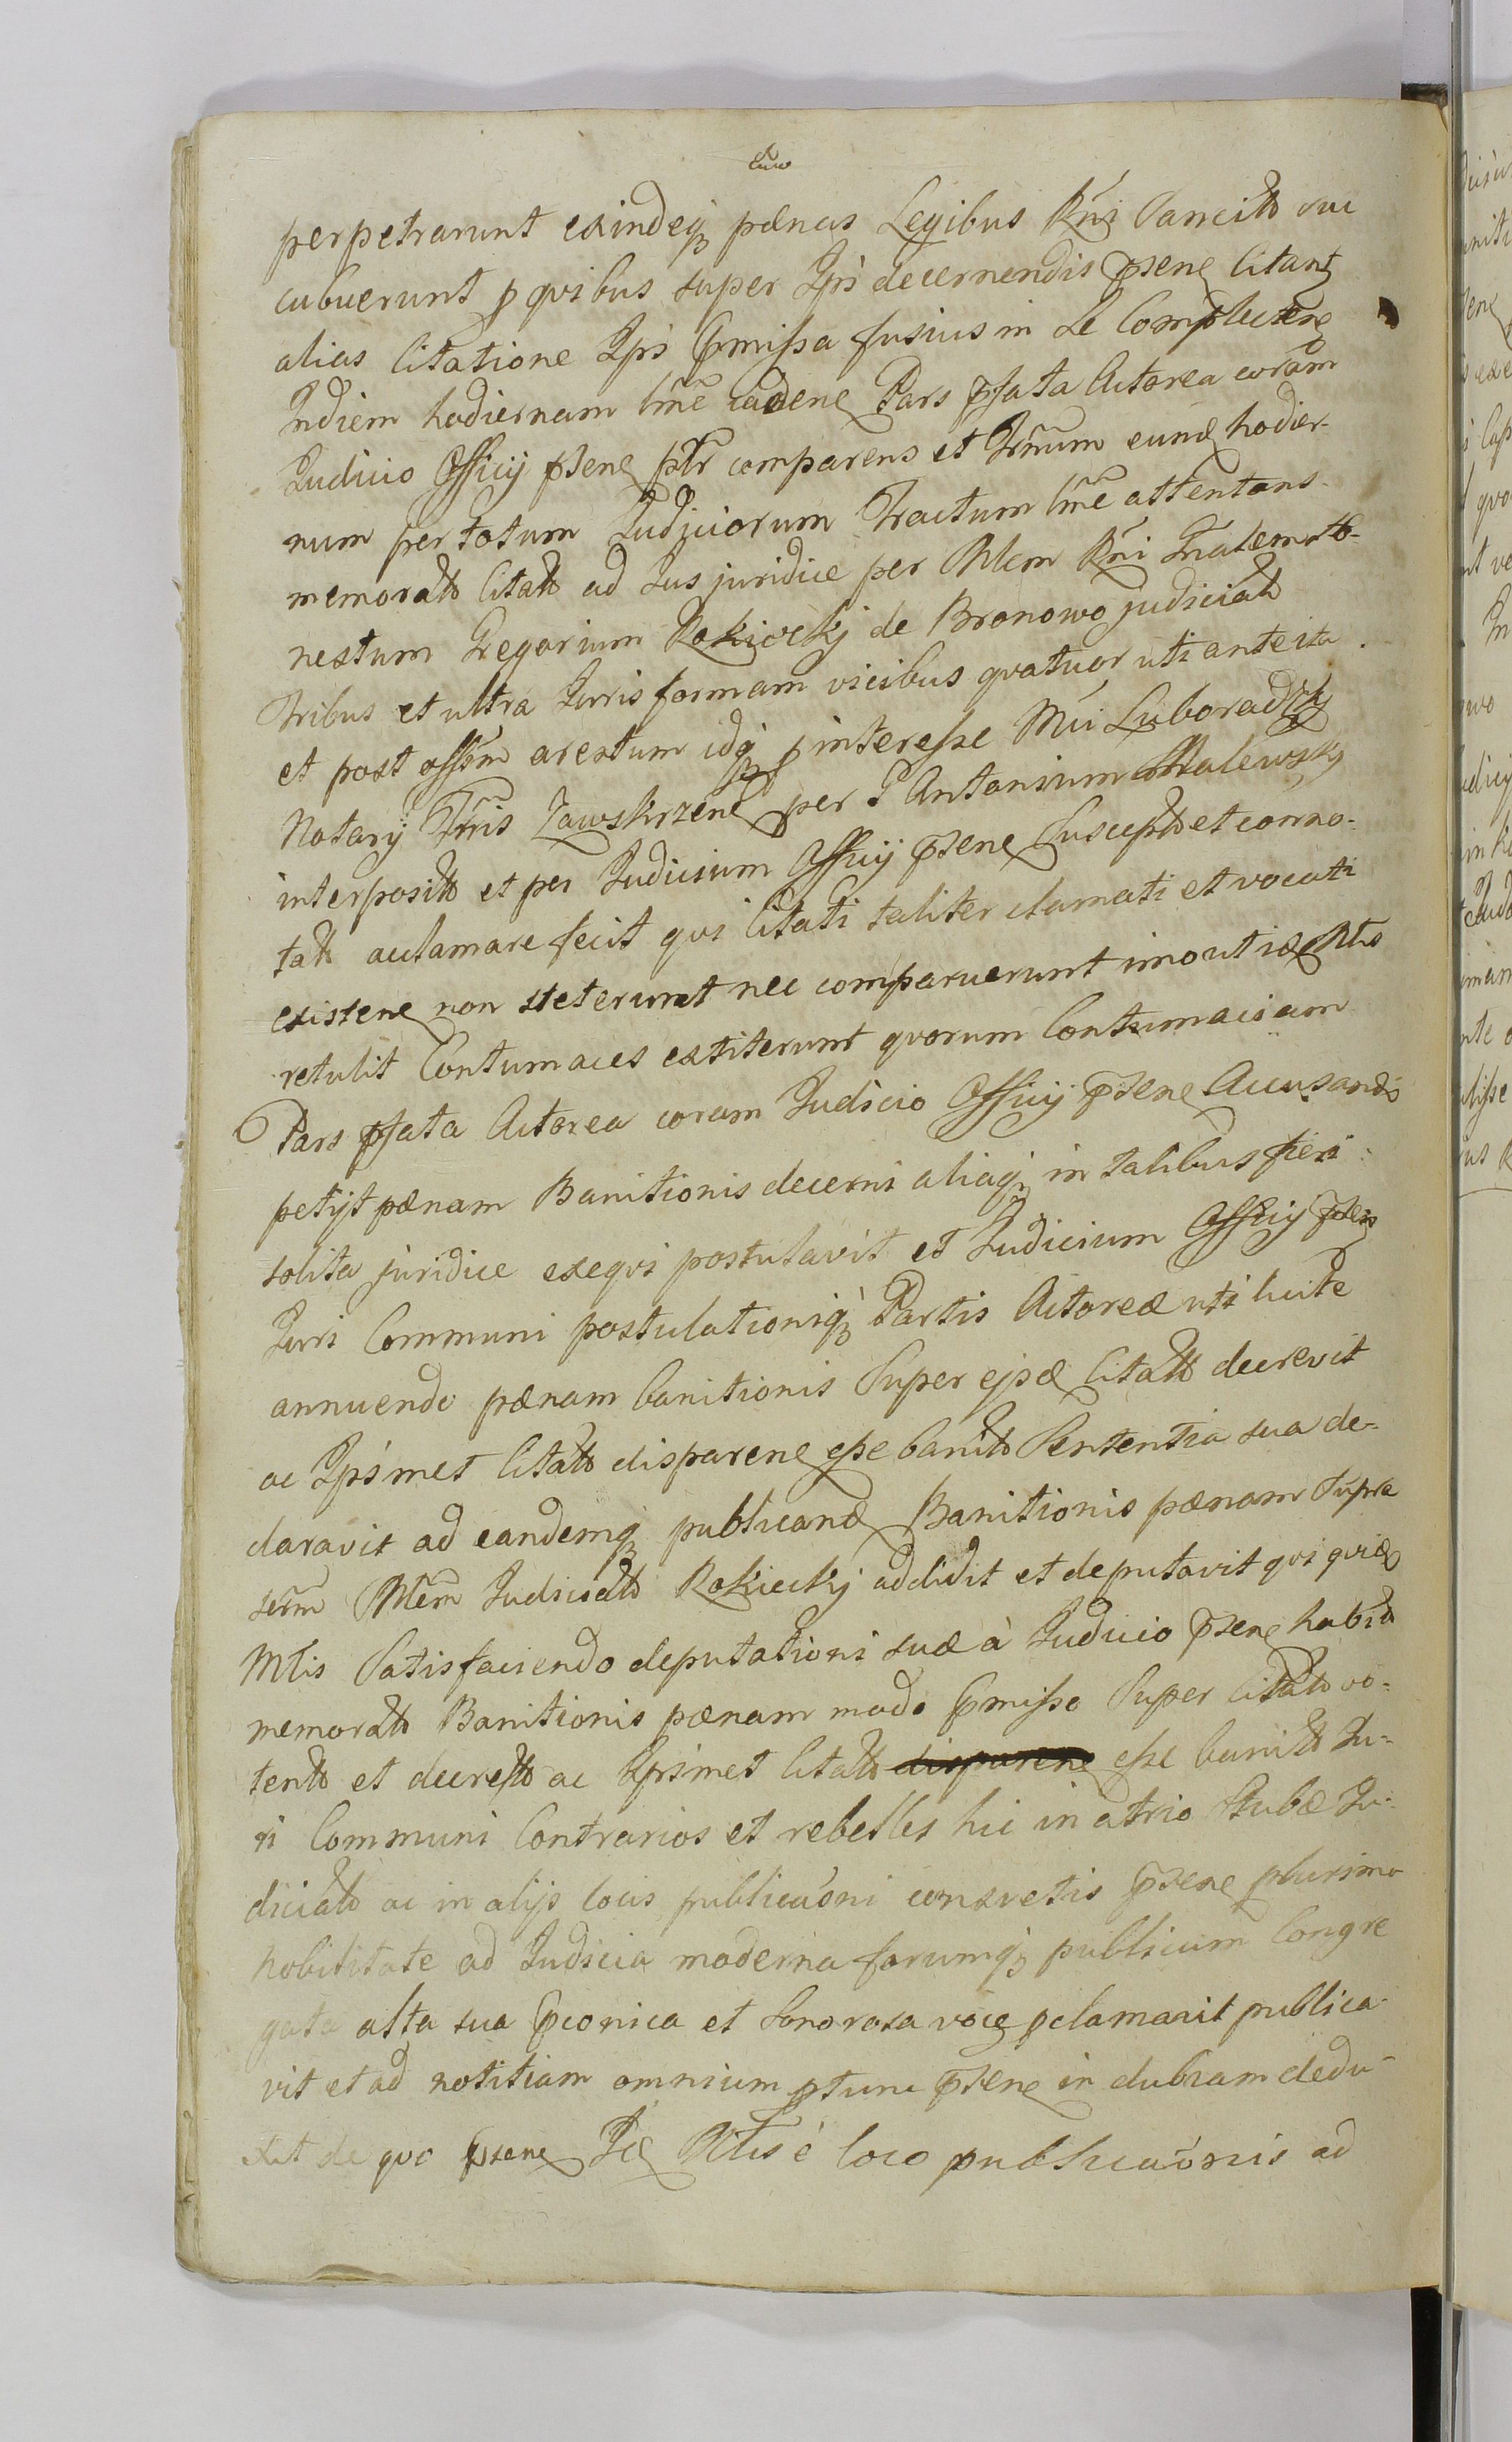 perpetrarunt exindeq₃ pænas Legibus Rni Sancitt suc
cubuerunt p qvibus super Ipis decernendis psene Citant
alias Citatione Ipis pmissa fusius in Se Complectene
Indiem hodiernam lme cadene Pars pfata Actorea coram
Judicio Officij psene ptr comparens et Trnum eund hodier-
num per totum Judiciorum Tractum lme attentans
memoratt Citatt ad Jus juridice per Mlem Rni Gnalem Ho-
nestum Gregorium Rokickj de Bronowo judiciatt
Tribus et ultra Juris formam vicibus qvatuor uti ante ita
et post offm arestum idq₃ p interesse Mci Luboradzkj
Notarij Trris Zawskrzene per G Antonium Malewskj
interpositt et per Judicium Officij psene Susceptt et conno-
tatt acclamare fecit qvi Citati taliter clamati et vocati
existene non steterunt nec comparuerunt imo ut id Mlis
retulit Contumaces extiterunt qvorum Contumaciam
Pars pfata Actorea coram Judicio Officij psene Accusando
petijt pænam Banitionis decerni aliaq₃ in talibus fieri
solita juridice exeqvi postulavit et Judicium Officij psens
Juri Communi postulationiq₃ Partis Actoreæ uti licite
annuendo pænam banitionis Super ejsd Citatt decrevit
ac Ipsmet Citatt disparene esse banitt Sententia sua de-
claravit ad eandemq₃ publicand Banitionis pænam Supra
scrm Mlem Judiciatt Rokieckj addidit et deputavit qvi qvid
Mlis Satisfaciendo deputationi suæ à Judicio psene habita
memoratt Banitionis pænam modo pmisso Super Citatt ob-
tentt et decrett ac Ipsmet Citatt disparene esse banitt Ju-
ri Communi Contrarios et rebelles hic in atrio Stubæ Ju-
diciatt ac in alijs locis publicaoni consvetis psene plurima
nobilitate ad Judicia moderna forumq₃ publicum Congre
gata alta sua pconica et Sonorosa voce pclamavit publica-
vit et ad notitiam omnium ptunc psene in dubiam dedu-
xit de qvo psene Id Mlis è loco publicaonis ad